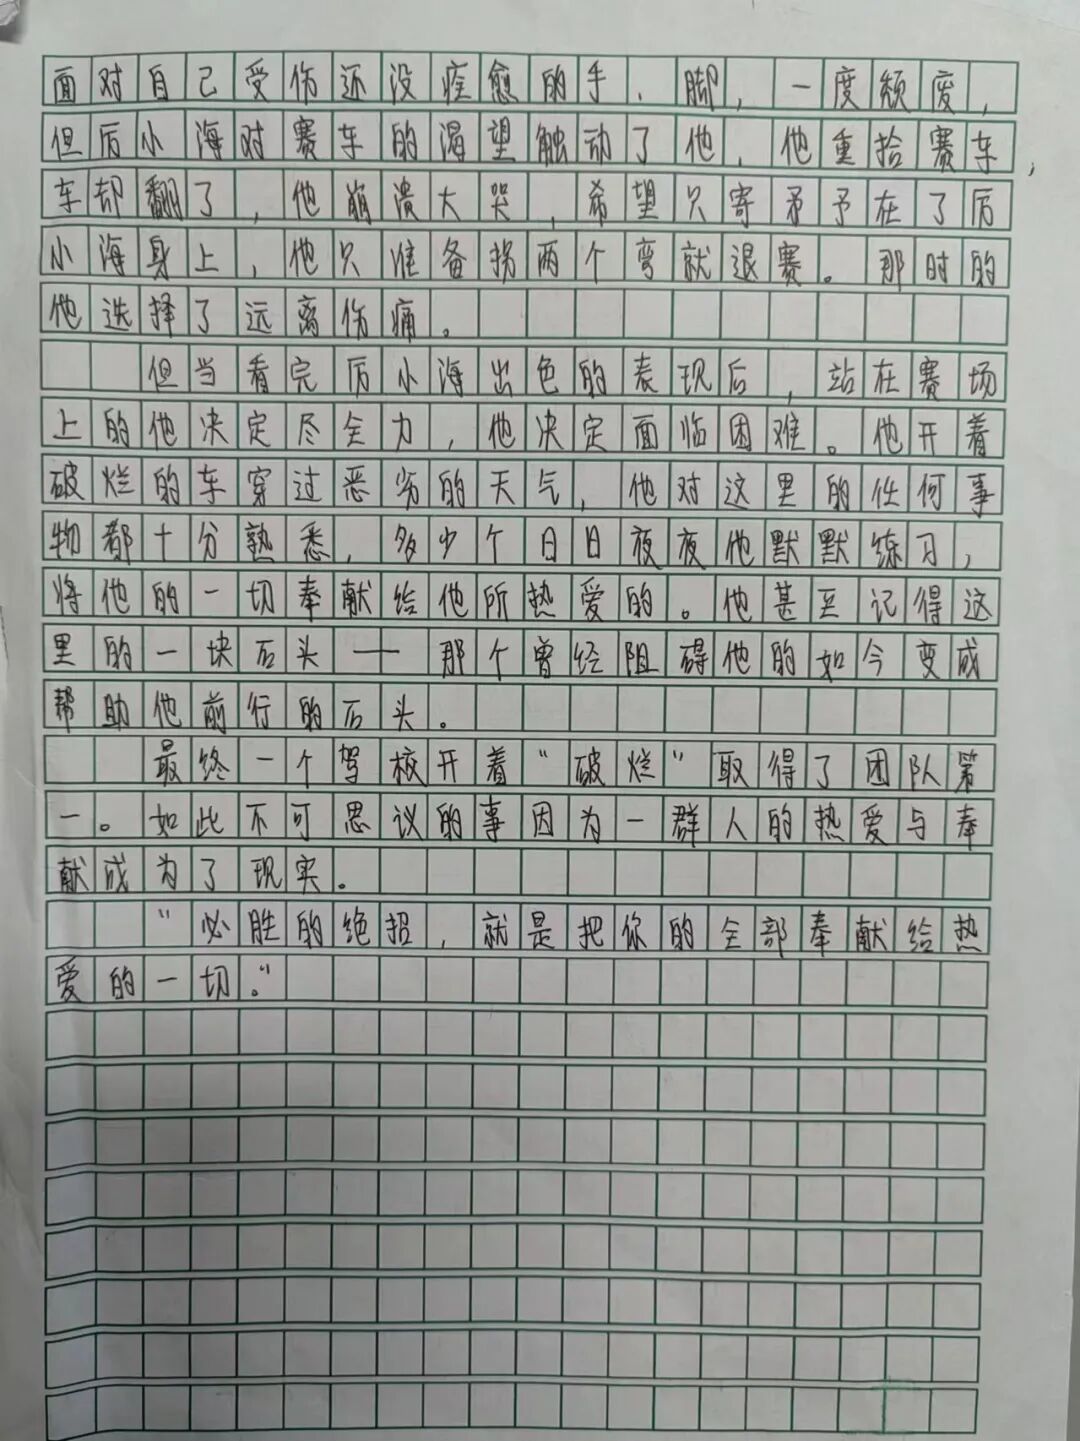 面对自己受伤还没痊愈的手、脚，一度颓废，
但厉小海对赛车的渴望触动了他，他重拾赛车，
车却翻了，他崩溃大哭，希望只寄矛予在了厉
小海身上，他只准备拐两个弯就退赛。那时的
他选择了远离伤痛。
但当看完厉小海出色的表现后，站在赛场
上的他决定尽全力，他决定面临困难。他开着
破烂的车穿过恶劣的天气，他对这里的任何事
物都十分熟悉，多少个日日夜夜他默默练习，
将他的一切奉献给他所热爱的。他甚至记得这
里的一块石头——那个曾经阻碍他的如今变成
帮助他前行的石头。
最终一个驾校开着“破烂”取得了团队第
一。如此不可思议的事因为一群人的热爱与奉
献成为了现实。
“必胜的绝招，就是把你的全部奉献给热
爱的一切。”